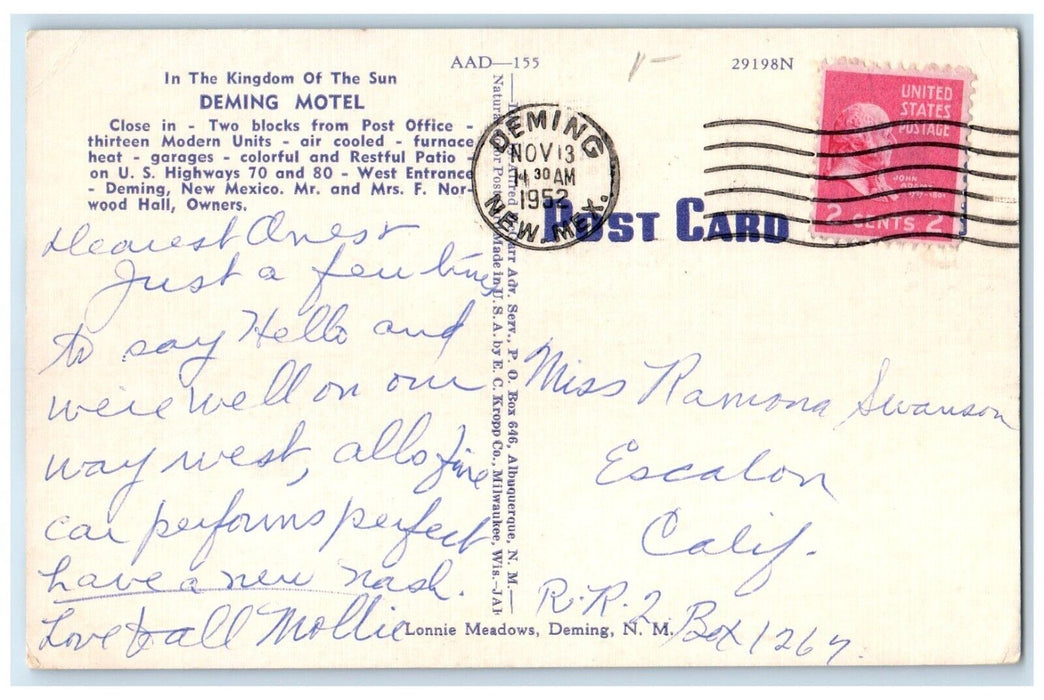 AAD—155
29198N
In The Kingdom Of The Sun
DEMING MOTEL
Close in - Two blocks from Post Office -
thirteen Modern Units - air cooled - furnace
heat - garages - colorful and Restful Patio
on U. S. Highways 70 and 80 - West Entrance
- Deming, New Mexico. Mr. and Mrs. F. Nor-
wood Hall, Owners.
Dearest Ones
Just a few lines
to say Hello and
we're well on our
way west, all's fine
car performs perfect
have a new nash.
Love to all Mollie
Adv. Serv., P. O. Box 646, Albuquerque, N. M.—
Made in U. S. A. by E. C. Kropp Co., Milwaukee, Wis.—JAI
DEMING
NOV 13
30 AM
1952
N. MEX.
POST CARD
UNITED
STATES
POSTAGE
JOHN
ADAMS
2 CENTS 2
Miss Ramona Swanson
Escalon
Calif.
R.R.2 Box 1267.
Lonnie Meadows, Deming, N. M.